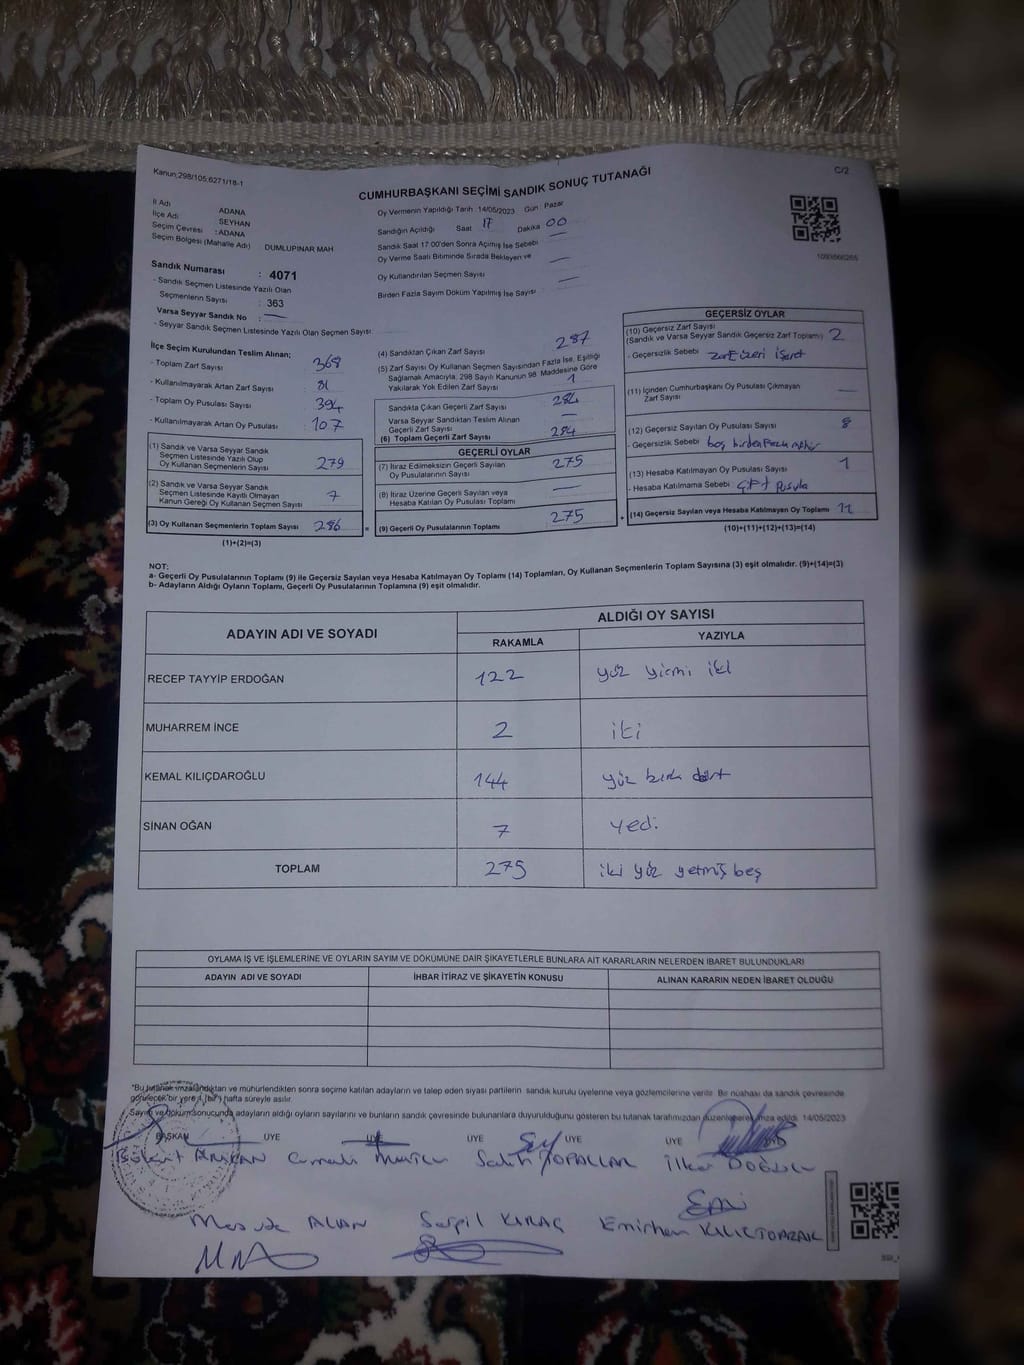 Kanun:298/105;6271/18-1
C/2
CUMHURBAŞKANI SEÇİMİ SANDIK SONUÇ TUTANAĞI
İl Adı ADANA
İlçe Adı SEYHAN
Seçim Çevresi : ADANA
Seçim Bölgesi (Mahalle Adı) DUMLUPINAR MAH
Oy Vermenin Yapıldığı Tarih 14/05/2023 Gün : Pazar
Sandığın Açıldığı Saat 17 Dakika 00
Sandık Saat 17:00'den Sonra Açılmış İse Sebebi
Oy Verme Saati Bitiminde Sırada Bekleyen ve
Oy Kullandırılan Seçmen Sayısı
Birden Fazla Sayım Döküm Yapılmış İse Sayısı
Sandık Numarası : 4071
- Sandık Seçmen Listesinde Yazılı Olan
Seçmenlerin Sayısı : 363
Varsa Seyyar Sandık No :
- Seyyar Sandık Seçmen Listesinde Yazılı Olan Seçmen Sayısı:
İlçe Seçim Kurulundan Teslim Alınan;
- Toplam Zarf Sayısı 368
- Kullanılmayarak Artan Zarf Sayısı 81
- Toplam Oy Pusulası Sayısı 394
- Kullanılmayarak Artan Oy Pusulası 107
(1) Sandık ve Varsa Seyyar Sandık
Seçmen Listesinde Yazılı Olup
Oy Kullanan Seçmenlerin Sayısı 279
(2) Sandık ve Varsa Seyyar Sandık
Seçmen Listesinde Kayıtlı Olmayan
Kanun Gereği Oy Kullanan Seçmen Sayısı 7
(3) Oy Kullanan Seçmenlerin Toplam Sayısı 286 =
(1)+(2)=(3)
(4) Sandıktan Çıkan Zarf Sayısı 287
(5) Zarf Sayısı Oy Kullanan Seçmen Sayısından Fazla İse, Eşitliği
Sağlamak Amacıyla, 298 Sayılı Kanunun 98. Maddesine Göre
Yakılarak Yok Edilen Zarf Sayısı 1
Sandıkta Çıkan Geçerli Zarf Sayısı 284
Varsa Seyyar Sandıktan Teslim Alınan
Geçerli Zarf Sayısı
(6) Toplam Geçerli Zarf Sayısı 284
GEÇERLİ OYLAR
(7) İtiraz Edilmeksizin Geçerli Sayılan
Oy Pusulalarının Sayısı 275
(8) İtiraz Üzerine Geçerli Sayılan veya
Hesaba Katılan Oy Pusulası Toplamı
(9) Geçerli Oy Pusulalarının Toplamı 275 +
GEÇERSİZ OYLAR
(10) Geçersiz Zarf Sayısı
(Sandık ve Varsa Seyyar Sandık Geçersiz Zarf Toplamı) 2
- Geçersizlik Sebebi zarf üzeri işaret
(11) İçinden Cumhurbaşkanı Oy Pusulası Çıkmayan
Zarf Sayısı
(12) Geçersiz Sayılan Oy Pusulası Sayısı 8
- Geçersizlik Sebebi boş birden fazla mühür
(13) Hesaba Katılmayan Oy Pusulası Sayısı 1
- Hesaba Katılmama Sebebi çift pusula
(14) Geçersiz Sayılan veya Hesaba Katılmayan Oy Toplamı 11
(10)+(11)+(12)+(13)=(14)
NOT:
a- Geçerli Oy Pusulalarının Toplamı (9) ile Geçersiz Sayılan veya Hesaba Katılmayan Oy Toplamı (14) Toplamları, Oy Kullanan Seçmenlerin Toplam Sayısına (3) eşit olmalıdır. (9)+(14)=(3)
b- Adayların Aldığı Oyların Toplamı, Geçerli Oy Pusulalarının Toplamına (9) eşit olmalıdır.
ADAYIN ADI VE SOYADI ALDIĞI OY SAYISI
RAKAMLA YAZIYLA
RECEP TAYYİP ERDOĞAN 122 yüz yirmi iki
MUHARREM İNCE 2 iki
KEMAL KILIÇDAROĞLU 144 yüz kırk dört
SİNAN OĞAN 7 yedi
TOPLAM 275 iki yüz yetmiş beş
OYLAMA İŞ VE İŞLEMLERİNE VE OYLARIN SAYIM VE DÖKÜMÜNE DAİR ŞİKAYETLERLE BUNLARA AİT KARARLARIN NELERDEN İBARET BULUNDUKLARI
ADAYIN ADI VE SOYADI İHBAR İTİRAZ VE ŞİKAYETİN KONUSU ALINAN KARARIN NEDEN İBARET OLDUĞU
*Bu tutanak imzalandıktan ve mühürlendikten sonra seçime katılan adayların ve talep eden siyasi partilerin sandık kurulu üyelerine veya gözlemcilerine verilir. Bir nüshası da sandık çevresinde
görülecek bir yere 1 (bir) hafta süreyle asılır.
Sayım ve döküm sonucunda adayların aldığı oyların sayılarını ve bunların sandık çevresinde bulunanlara duyurulduğunu gösteren bu tutanak tarafımızdan düzenlenerek imza edildi. 14/05/2023
BAŞKAN ÜYE ÜYE ÜYE ÜYE ÜYE
Salih TOPALLAR İlker
Mesude ALAN Serpil KIRAÇ Emirhan KILIÇTOPRAK